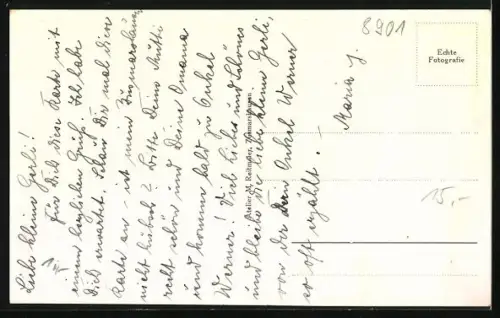 Liebe kleine Gerli!
Für Dich diese Karte mit
einem herzlichen Gruß. Ich habe
Dich erwartet. Schau Dir mal diese
Karte an - ist mein Zusmarshausen
nicht hübsch? Bitte Deine Mutti
recht schön und Deine Omama
und komme bald zu Onkel
Werner! Viel Liebes und Schönes
und bleibe die liebe kleine Gerli,
von der Dein Onkel Werner
so oft erzählt. -
Maria J.
8901
Echte
Fotografie
Atelier M. Reitmayer, Zusmarshausen
15,-